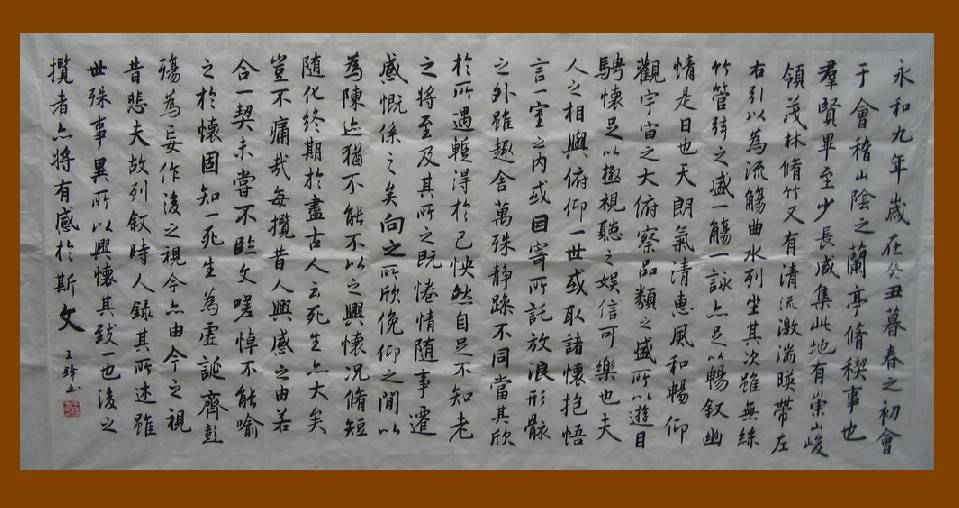 永和九年歲在癸丑暮春之初會
于會稽山陰之蘭亭脩稧事也
羣賢畢至少長咸集此地有崇山峻
領茂林脩竹又有清流激湍暎帶左
右引以為流觴曲水列坐其次雖無絲
竹管弦之盛一觴一詠亦足以暢叙幽
情是日也天朗氣清惠風和暢仰
觀宇宙之大俯察品類之盛所以遊目
騁懷足以極視聽之娛信可樂也夫
人之相與俯仰一世或取諸懷抱悟
言一室之内或因寄所託放浪形骸
之外雖趣舍萬殊静躁不同當其欣
於所遇輙得於己怏然自足不知老
之將至及其所之既惓情随事遷
感慨係之矣向之所欣俛仰之閒以
為陳迹猶不能不以之興懷况脩短
随化終期於盡古人云死生亦大矣
豈不痛哉每攬昔人興感之由若
合一契未嘗不臨文嗟悼不能喻
之於懷固知一死生為虛誕齊彭
殤為妄作後之視今亦由今之視
昔悲夫故列叙時人録其所述雖
世殊事異所以興懷其致一也後之
攬者亦將有感於斯文